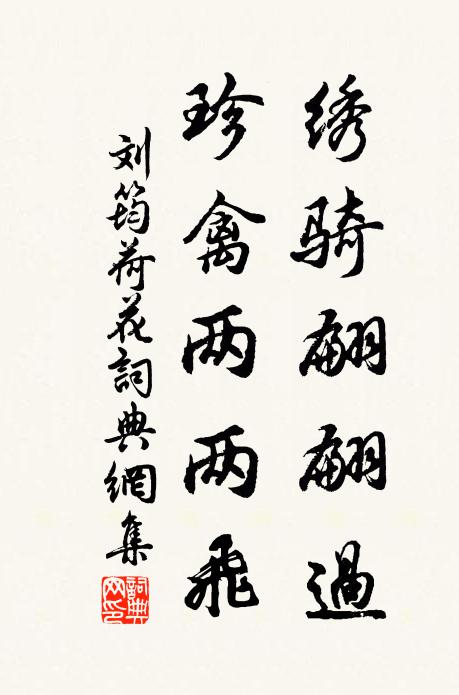 绣骑翩翩過
珍禽两两飛
刘筠荷花詞典網集
詞典網印